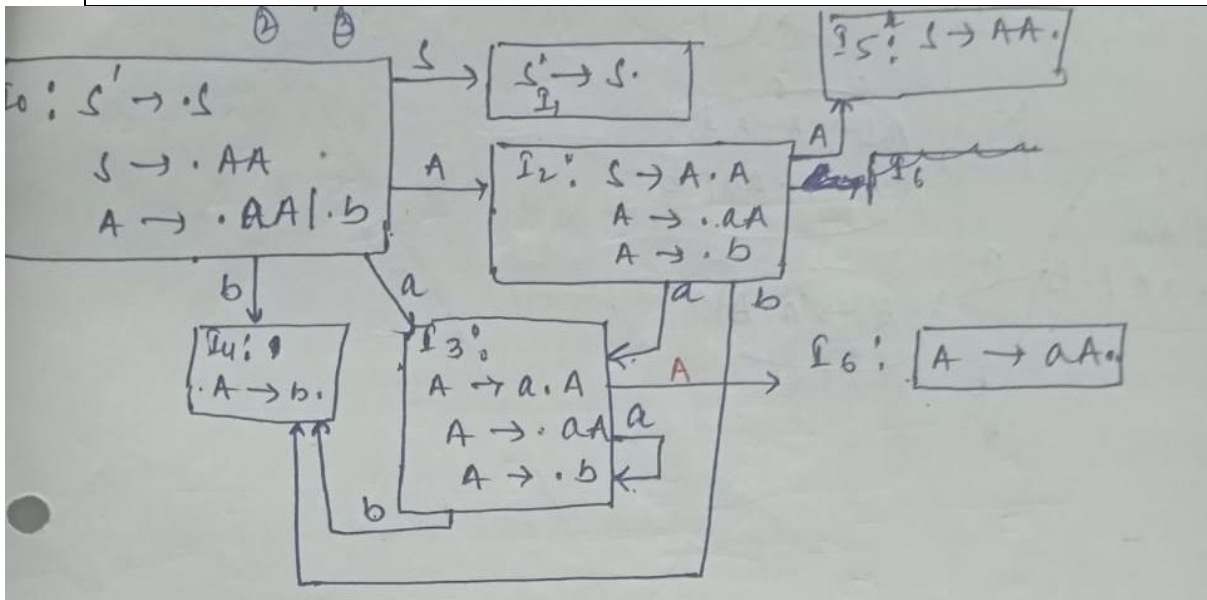 ② ③
I0: S' → .S
S → .AA
A → .aA|.b
S
S' → S.
I1
I5: S → AA.
A
I2: S → A.A
A → .aA
A → .b
A
I6
b
a
a
b
I4:
.A → b.
I3:
A → a.A
A → .aA
A → .b
A
a
I6: A → aA.
b